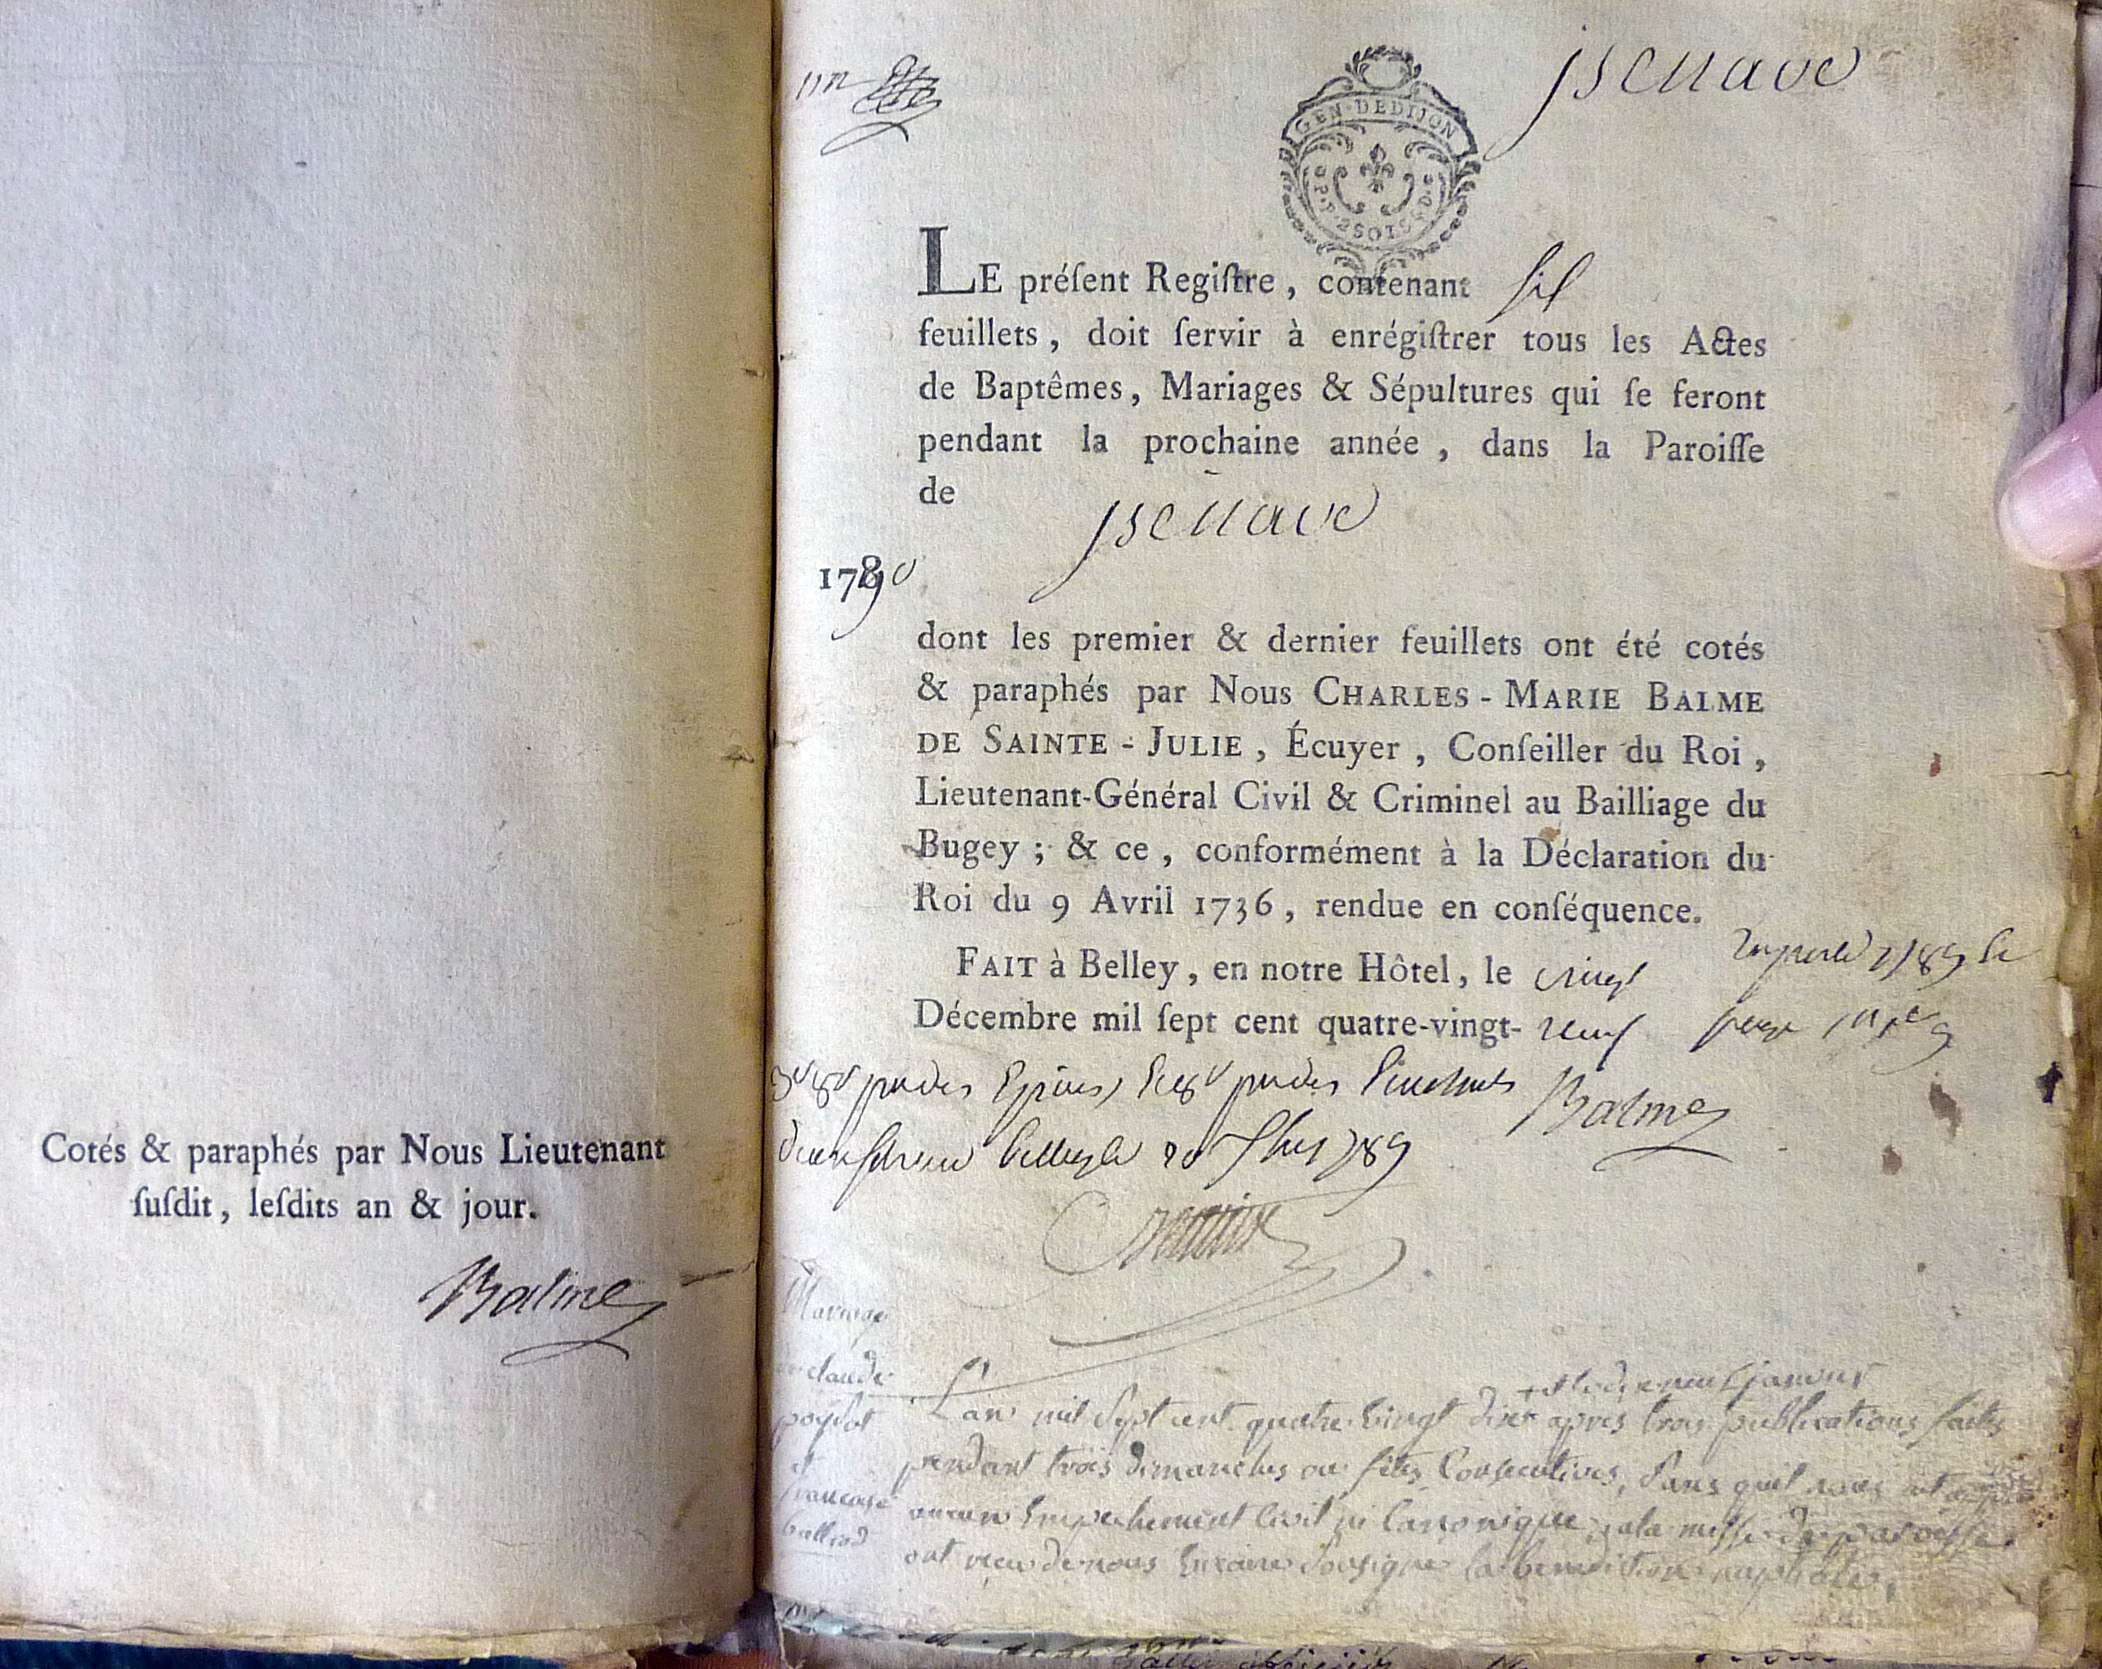 Cotés & paraphés par Nous Lieutenant
ſuſdit, leſdits an & jour.
Balme
jsenave
GEN·DEDIJON
LE préſent Regiſtre, contenant six
feuillets, doit ſervir à enrégiſtrer tous les Actes
de Baptêmes, Mariages & Sépultures qui ſe feront
pendant la prochaine année, dans la Paroiſſe
de jsenave
1790
dont les premier & dernier feuillets ont été cotés
& paraphés par Nous CHARLES-MARIE BALME
DE SAINTE-JULIE, Écuyer, Conſeiller du Roi,
Lieutenant-Général Civil & Criminel au Bailliage du
Bugey; & ce, conformément à la Déclaration du
Roi du 9 Avril 1736, rendue en conſéquence.
FAIT à Belley, en notre Hôtel, le vingt
Décembre mil ſept cent quatre-vingt-neuf
Balme
Mariage
claude
poysot
et
francoise
balliod
L'an mil sept cent quatre vingt dix + et le dixneuf janvier
apres trois publications faites
pendant trois dimanches ou fêtes Consecutives, sans quil nous ait
aucun Empechement Civil ni Canonique, a la messe de paroisse
ont reçu de nous vicaire soussigné la benediction nuptiale,